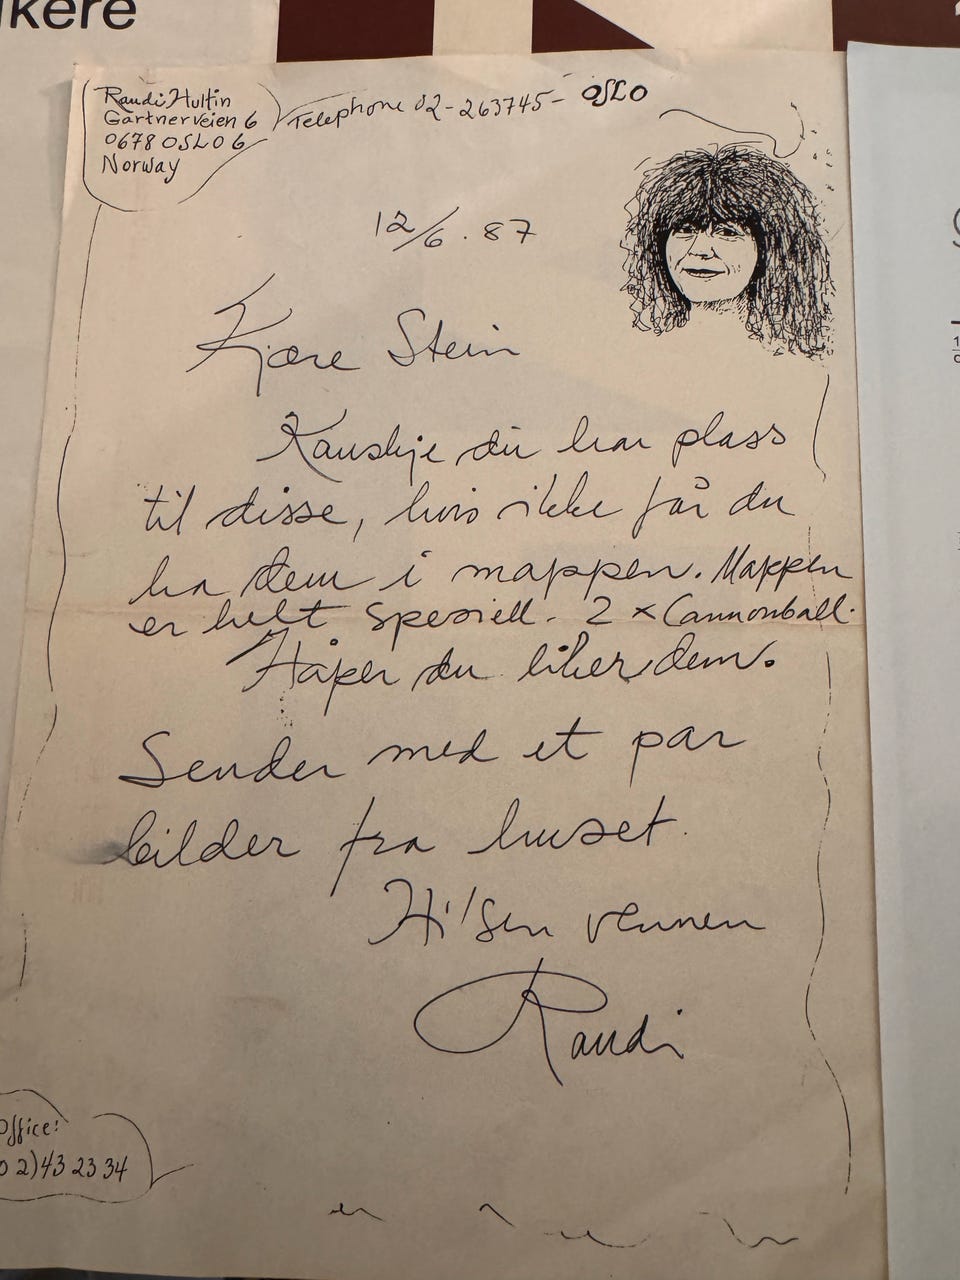 kere
Randi Hultin
Gartnerveien 6
0678 OSLO 6
Norway
Telephone 02-263745- OSLO
12/6.87
Kjære Stein
Kanskje du har plass
til disse, hvis ikke får du
ha dem i mappen. Mappen
er helt spesiell. 2 x Cannonball.
Håper du liker dem.
Sender med et par
bilder fra huset.
Hilsen vennen
Randi
Office:
02)43 23 34